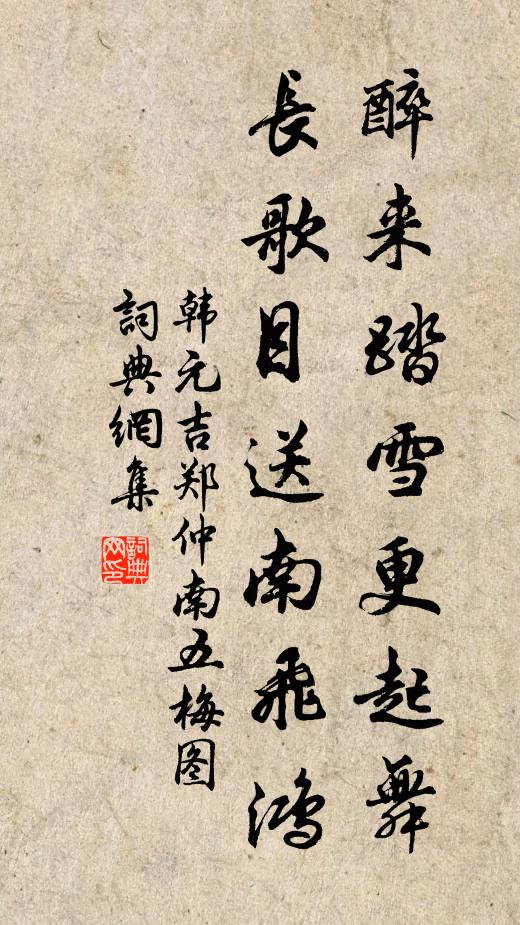 醉来踏雪更起舞
長歌目送南飛鴻
韩元吉郑仲南五梅图
詞典網集
詞典
网印